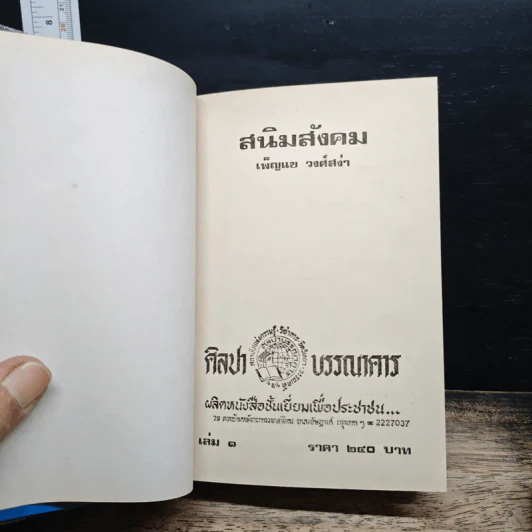 8
สนิมสังคม
เพ็ญแข วงศ์สง่า
ศิลปาบรรณาคาร
ผลิตหนังสือชั้นเยี่ยมเพื่อประชาชน...
กรุงเทพ ฯ 2227037
เล่ม ๑ ราคา ๒๔๐ บาท